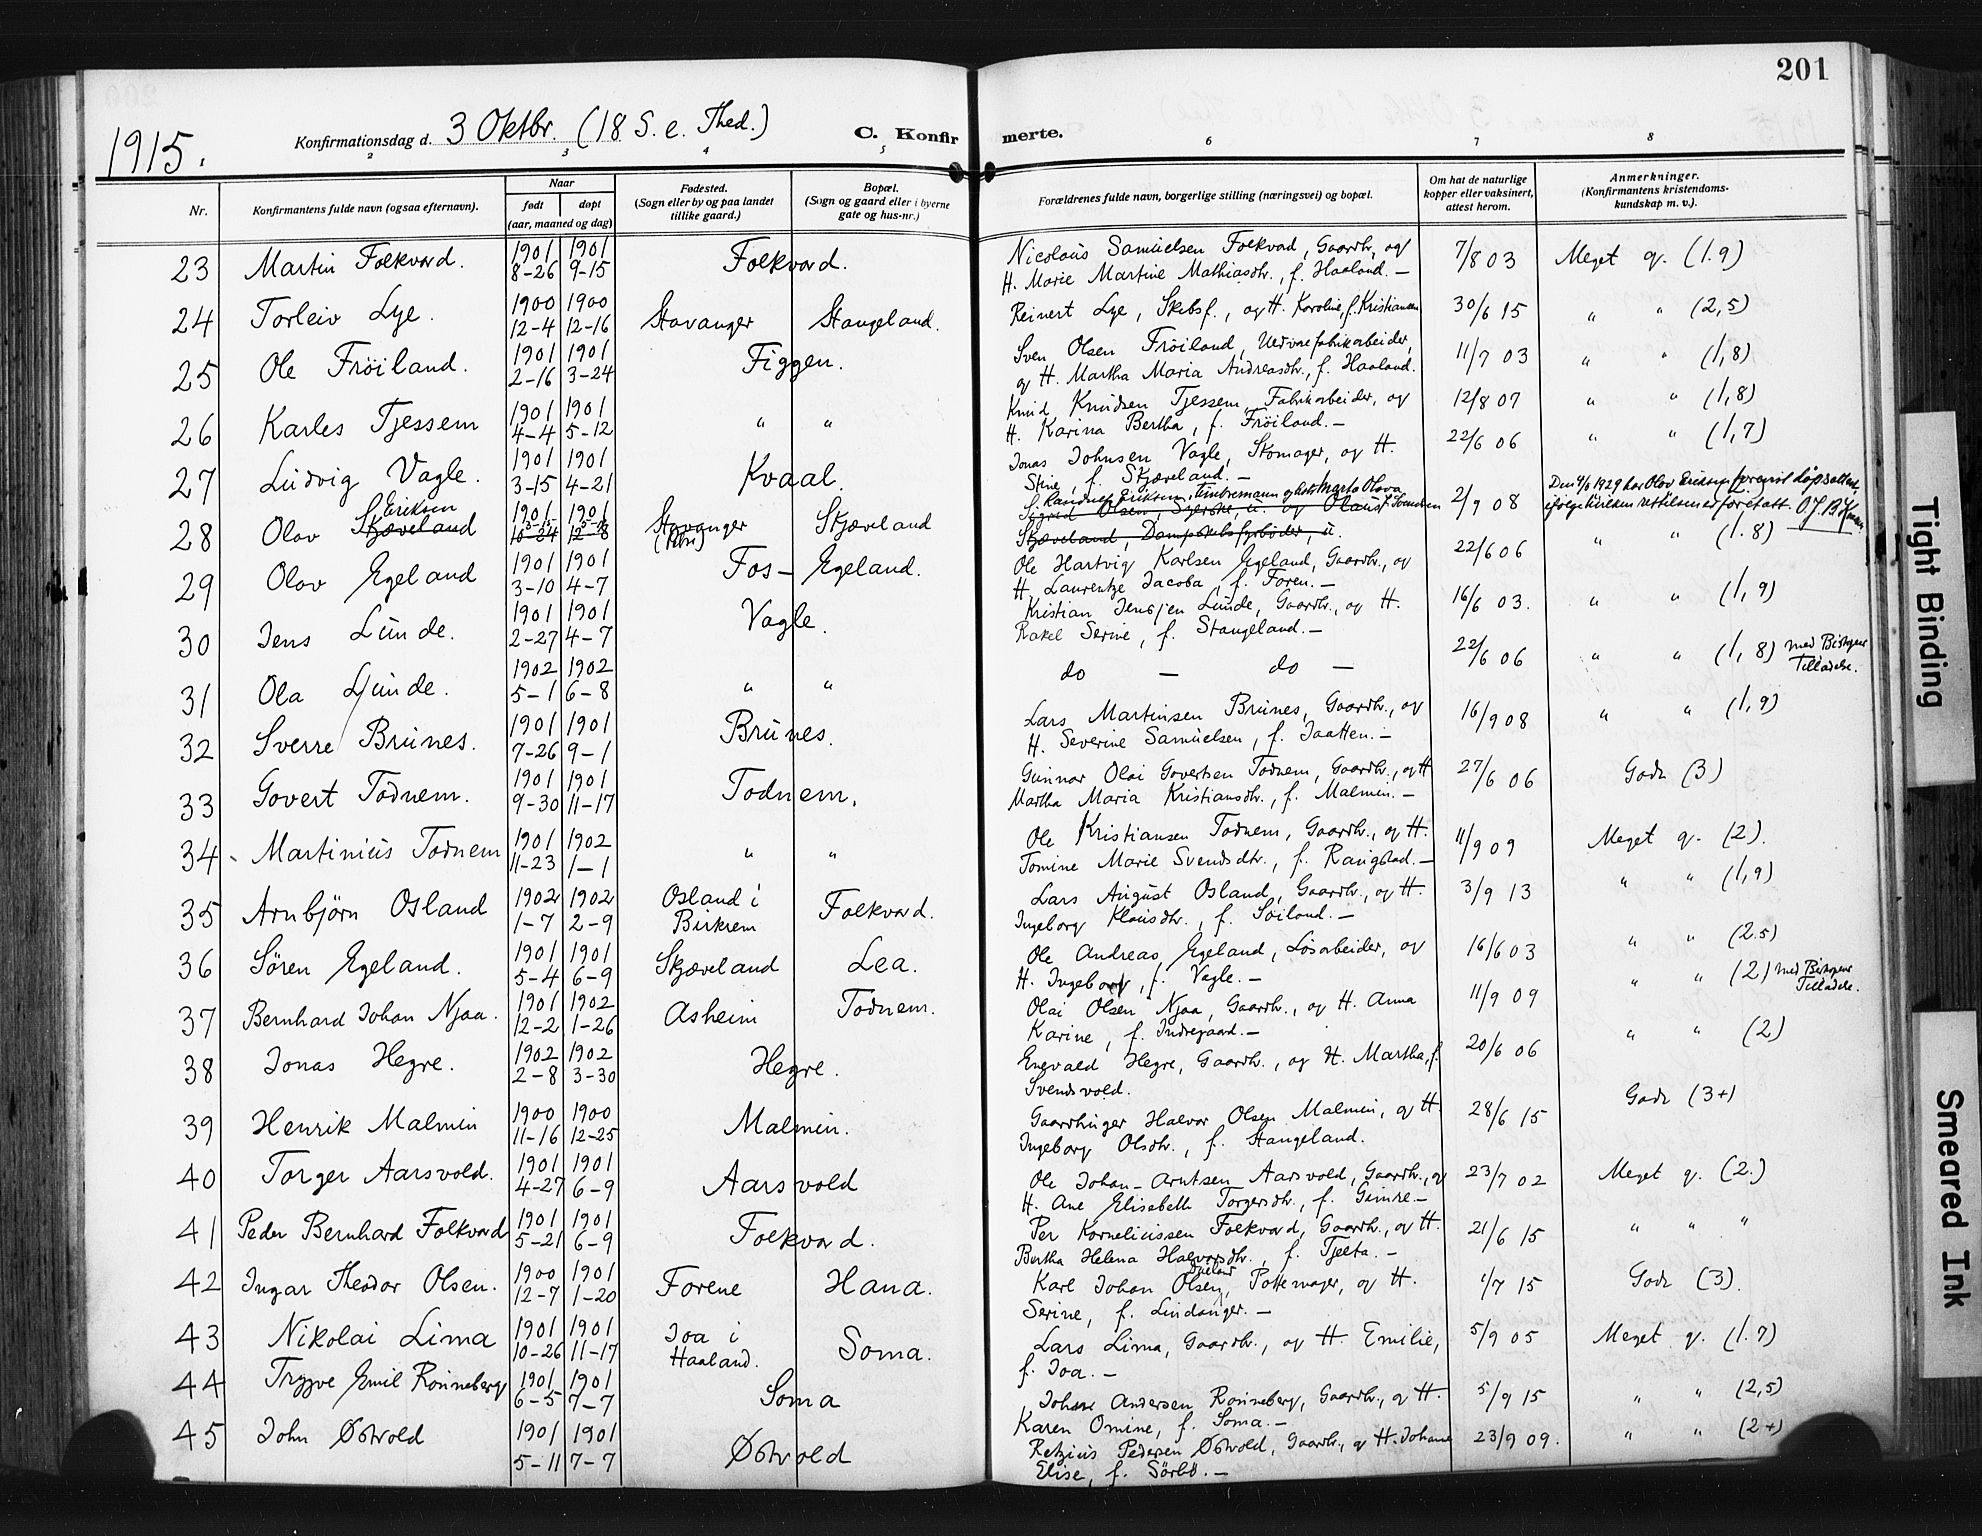 201
1915.
Konfirmationsdag d. 3 Oktbr. (18 S. e. Thed.)
C. Konfirmerte.
2 3 4 5 6 7 8
Nr.
Konfirmantens fulde navn (ogsaa efternavn).
Naar
født døpt
(aar, maaned og dag)
Fødested.
(Sogn eller by og paa landet
tillike gaard.)
Bopæl.
(Sogn og gaard eller i byerne
gate og hus-nr.)
Forældrenes fulde navn, borgerlige stilling (næringsvei) og bopæl.
Om hat de naturlige
kopper eller vaksinert,
attest herom.
Anmerkninger.
(Konfirmantens kristendoms-
kundskap m. v.).
23 Martin Folkvord. 1901 8-26 1901 9-15 Folkvord.
Nicolaus Samuelsen Folkvord, Gaardbr, og
H. Marie Martine Mathiasdtr., f. Haaland. —
7/8 03 Meget g. (1.9)
24 Torleiv Lye. 1900 12-4 1900 12-16 Stavanger Stangeland.
Reinert Lye, Skibsf., og H. Karoline, f. Kristiansen
30/6 15 " " (2,5)
25 Ole Fröiland. 1901 2-16 1901 3-24 Figgen.
Sven Olsen Fröiland, Uldvarefabrikarbeider,
og H. Martha Maria Andreasdtr., f. Haaland.
11/7 03 " " (1,8)
26 Karles Tjessem 1901 4-4 1901 5-12 " "
Knud Knudsen Tjessem, Fabrikarbeider, og
H. Karina Bertha, f. Fröiland. —
12/8 07 " " (1,8)
27 Ludvig Vagle. 1901 3-15 1901 4-21 Kvaal.
Jonas Johnsen Vagle, Skomager, og H.
Stine, f. Skjæveland. —
22/6 06 " " (1,7)
28 Olav Eriksen Skjæveland 1901 10-24 1901 12-8 Stavanger (Petri) Skjæveland
Eriksen, Tømmermann og Marta Olava
Sigrid Olsen, Syerske, u. og Olaus Svendsen
Skjæveland, Dampskibsfyrbøder, u.
2/9 08 " " (1.8)
29 Olav Egeland 1901 3-10 1901 4-7 Fos-Egeland.
Ole Hartvig Karlsen Egeland, Gaardbr., og
H. Laurentze Jacoba, f. Foren. —
22/6 06 " " (1,9)
30 Jens Lunde. 1901 2-27 1901 4-7 Vagle.
Kristian Jensjen Lunde, Gaardbr., og H.
Rakel Serine, f. Stangeland. —
16/6 03.
31 Ola Lunde. 1902 5-1 1902 6-8 " "
do — do —
22/6 06 " " (1,8) med Bispens
Tilladelse.
32 Sverre Brunes. 1901 7-26 1901 9-1 Brunes.
Lars Martinsen Brunes, Gaardbr., og
H. Severine Samuelsen, f. Jaatten. —
16/9 08 " " (1,9)
33 Govert Todnem. 1901 9-30 1901 11-17 Todnem.
Gunnar Olai Govertsen Todnem, Gaardbr., og H
Martha Maria Kristiansdtr., f. Malmin. —
27/6 06 Godt (3)
34 Martinius Todnem 1901 11-23 1902 1-1 " "
Ole Kristiansen Todnem, Gaardbr., og H.
Tomine Marie Svendsdtr., f. Raugstad. —
11/9 09 Meget g. (2).
35 Arnbjörn Osland 1902 1-7 1902 2-9 Osland i
Birkrem Folkvord.
Lars August Osland, Gaardbr., og H.
Ingeborg Klausdtr., f. Söiland. —
3/9 13 " " (1,9)
36 Sören Egeland. 1901 5-4 1901 6-9 Skjæveland Lea.
Ole Andreas Egeland, Løsarbeider, og
H. Ingeborg, f. Vagle. —
16/6 03 " " (2.5)
37 Bernhard Johan Njaa. 1901 12-2 1902 1-26 Asheim Todnem.
Olai Olsen Njaa, Gaardbr., og H. Anna
Karine, f. Indregaard. —
11/9 09 " " (2) med Bispens
Tilladelse.
38 Jonas Hegre. 1902 2-8 1902 3-30 Hegre.
Enevald Hegre, Gaardbr., og H. Martha, f.
Svendsvold.
20/6 06 " " (2)
39 Henrik Malmin 1900 11-16 1900 12-25 Malmin.
Gaardbruger Halvor Olsen Malmin, og H.
Ingeborg Olsdtr., f. Stangeland.
28/6 15 Godt (3+)
40 Torger Aarsvold. 1901 4-27 1901 6-9 Aarsvold
Ole Johan Arntsen Aarsvold, Gaardbr., og
H. Ane Elisabeth Torgersdtr., f. Gimre. —
23/7 02 Meget g. (2.)
41 Peder Bernhard Folkvord 1901 5-21 1901 6-9 Folkvord.
Per Korneliussen Folkvord, Gaardbr., og H.
Bertha Helena Halvorsdtr., f. Tjelta. —
21/6 15 " " "
42 Ingar Theodor Olsen. 1900 12-7 1901 1-20 Forene Hana.
Karl Johan Olsen, Pottemager, og H.
Serine, f. Lindanger. —
1/7 15 Godt (3).
43 Nikolai Lima 1901 10-26 1901 11-17 Joa i
Haaland. Soma.
Lars Lima, Gaardbr., og H. Emilie,
f. Joa. —
5/9 05 Meget g. (1.7)
44 Trygve Emil Rönneberg 1901 6-5 1901 7-7 Soma
Johan Andersen Rönneberg, Gaardbr., og H.
Karen Omine, f. Soma. —
5/9 15 " " (2,5)
45 John Østvold 1901 5-11 1901 7-7 Østvold
Retzius Pedersen Østvold, Gaardbr., og H. Johanne
Elise, f. Sörbö. —
23/9 09. " " (2+)
Tight Binding
Smeared Ink